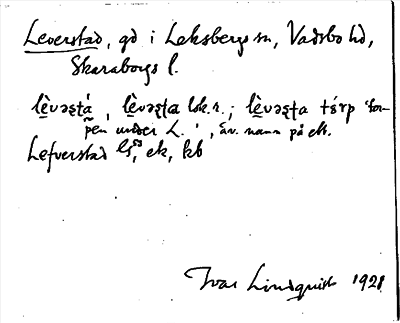 Leverstad, gd i Leksbergs sn, Vadsbo hd,
Skaraborgs l.
lèvəștá, lèvəșta lsk.r.; lèvəșta tśrp 'tor-
pen under L.', äv. namn på elt.
Lefverstad ek, kb
Ivar Lindquist 1921